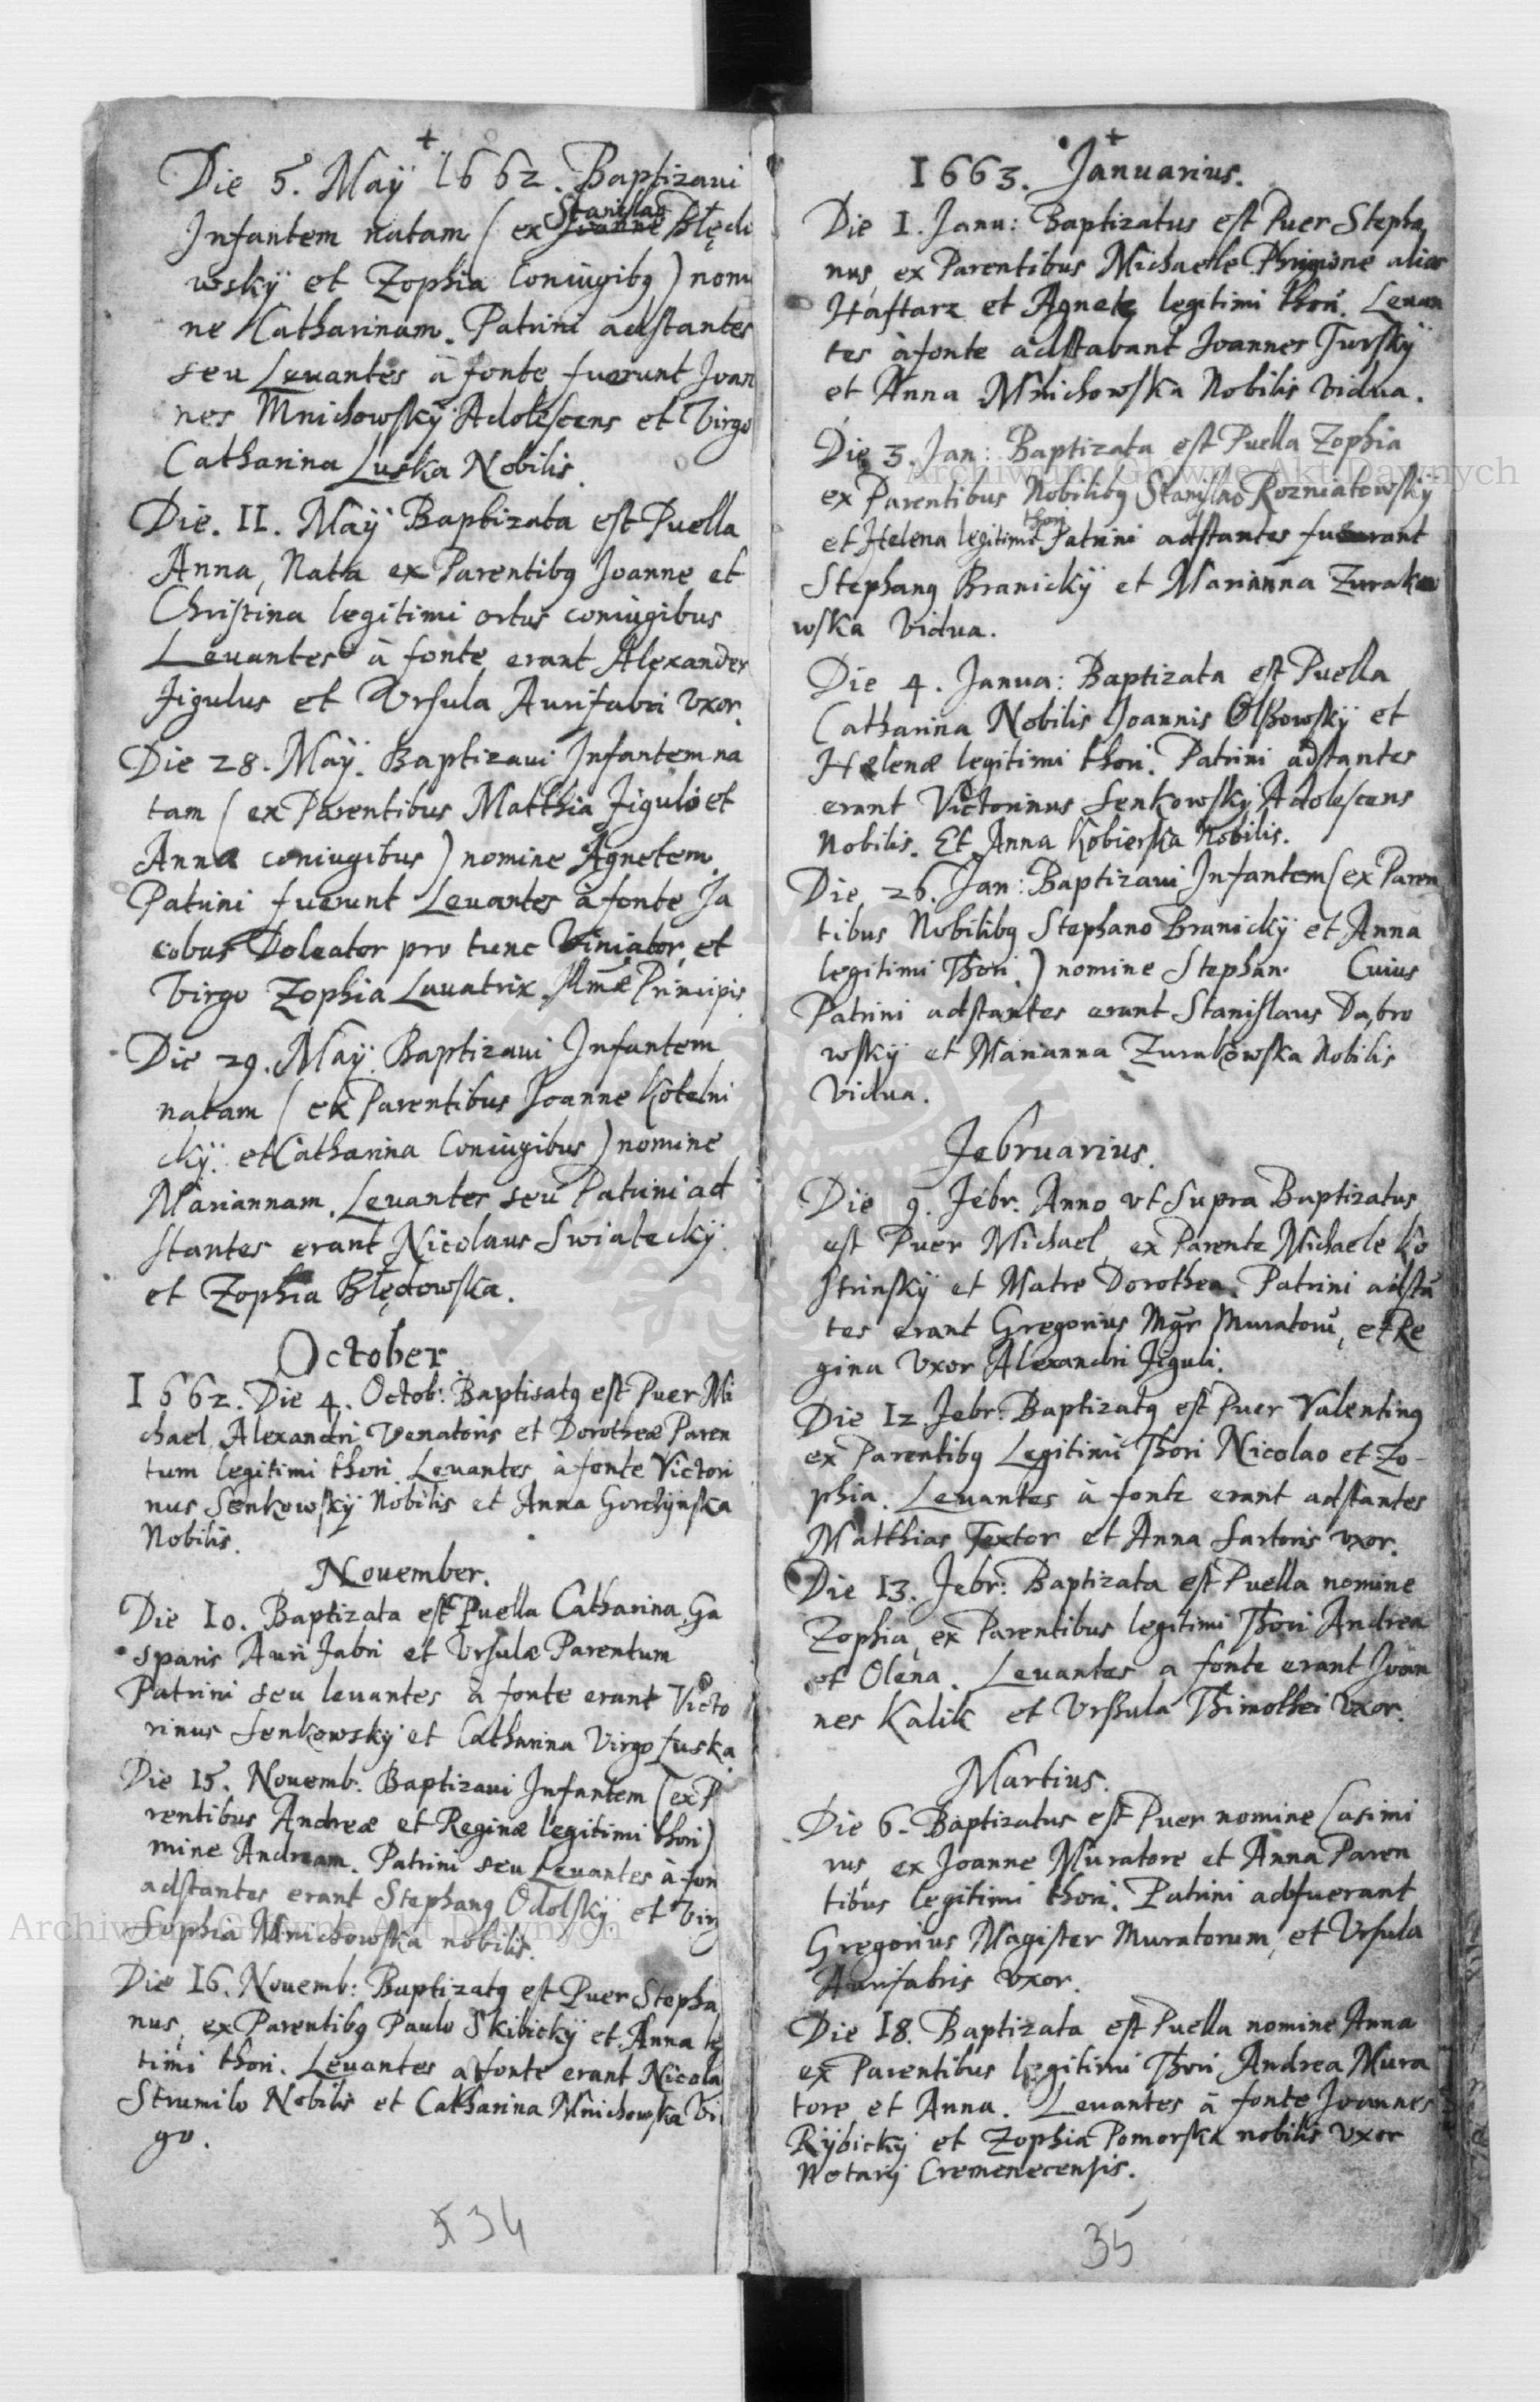 Die 5. Maÿ 1662. Baptizaui
Infantem natam (ex Stanislao Joanne Błędo
wskÿ et Zophia Coniugibꝰ) nomi
ne Catharinam. Patrini adstantes
seu Leuantes à fonte fuerunt Joan
nes Mnichowskÿ Adolescens et Virgo
Catharina Luska Nobilis.
Die. 11. Maÿ Baptizata est Puella
Anna, Nata ex Parentibꝰ Joanne et
Christina legitimi ortus coniugibus
Leuantes à fonte erant Alexander
Figulus et Vrsula Aurifabri Vxor.
Die 28. Maÿ. Baptizaui Infantem na
tam (ex Parentibus Matthia Figulo et
Anna coniugibus) nomine Agnetem.
Patrini fuerunt Leuantes à fonte Ja
cobus Doleator pro tunc Viniator, et
Virgo Zophia Lauatrix Illmæ Principis
Die 29. Maÿ. Baptizaui Infantem
natam (ex Parentibus Joanne Kotelni
ckÿ. et Catharina Coniugibus) nomine
Mariannam. Leuantes seu Patrini ad
stantes erant Nicolaus Swiateckÿ
et Zophia Błędowska.
October
1662. Die 4. Octob: Baptisatꝰ est Puer Mi
chael Alexandri Venatoris et Dorotheæ Paren
tum legitimi thori. Leuantes à fonte Victori
nus Senkowskÿ Nobilis et Anna Gorchÿnska
Nobilis.
November.
Die 10. Baptizata est Puella Catharina Ga
sparis Aurifabri et Vrsulæ Parentum
Patrini seu leuantes a fonte erant Victo
rinus Senkowskÿ et Catharina Virgo Luska.
Die 15. Nouemb. Baptizaui Infantem (ex P
rentibus Andreæ et Reginæ legitimi thori)
mine Andream. Patrini seu Leuantes à fon
adstantes erant Stephanꝰ Odolskÿ et Vir
Sophia Mnichowska nobilis.
Die 16. Nouemb: Baptizatꝰ est Puer Stepha
nus, ex Parentibꝰ Paulo Skibickÿ et Anna le
timi thori. Leuantes a fonte erant Nicola
Strumilo Nobilis et Catharina Mnichowska Vi
go.
34
1663. Januarius.
Die 1. Janu: Baptizatus est Puer Stepha
nus, ex Parentibus Michaele Phrigione alias
Haftarz et Agnete legitimi thori. Leuan
tes à fonte adstabant Joannes Turskÿ
et Anna Mnichowska Nobilis Vidua.
Die 3. Jan: Baptizata est Puella Zophia
ex Parentibus Nobilibꝰ Stanislao Rozniatowskÿ
et Helena legitimi thori Patrini adstantes fuerant
Stephanꝰ Branickÿ et Marianna Zurako
wska Vidua.
Die 4. Janua: Baptizata est Puella
Catharina Nobilis Joannis Olszowskÿ et
Helenæ legitimi thori. Patrini adstantes
erant Victorinus Senkowskÿ Adolescens
Nobilis. Et Anna Kobierska Nobilis.
Die 26. Jan: Baptizaui Infantem (ex Paren
tibus Nobilibꝰ Stephano Branickÿ et Anna
legitimi Thori.) nomine Stephan. Cuius
Patrini adstantes erant Stanislaus Dąbro
wskÿ et Marianna Zurakowska Nobilis
Vidua.
Februarius.
Die 9. Febr. Anno vt Supra Baptizatus
est Puer Michael ex Parente Michaele Ko
strinskÿ et Matre Dorothea. Patrini adstā
tes erant Gregorius Mgr Muratorū, et Re
gina Vxor Alexandri Figuli.
Die 12 Febr: Baptizatꝰ est Puer Valentinꝰ
ex Parentibꝰ Legitimi Thori Nicolao et Zo-
phia. Leuantes à fonte erant adstantes
Matthias Textor et Anna Sartoris vxor.
Die 13. Febr: Baptizata est Puella nomine
Zophia, ex Parentibus legitimi Thori Andrea
et Olena. Leuantes a fonte erant Joan
nes Kalik et Vrszula Thimothei Vxor.
Martius.
Die 6. Baptizatus est Puer nomine Casimi
rus, ex Joanne Muratore et Anna Paren
tibus legitimi thori. Patrini adfuerant
Gregorius Magister Muratorum, et Vrsula
Aurifabris vxor.
Die 18. Baptizata est Puella nomine Anna
ex Parentibus legitimi Thori Andrea Mura
tore et Anna. Leuantes à fonte Joannes
Rÿbickÿ et Zophia Pomorska nobilis Vxor
Notarÿ Cremenecensis.
35
Archiwum Główne Akt Dawnych
Archiwum Główne Akt Dawnych